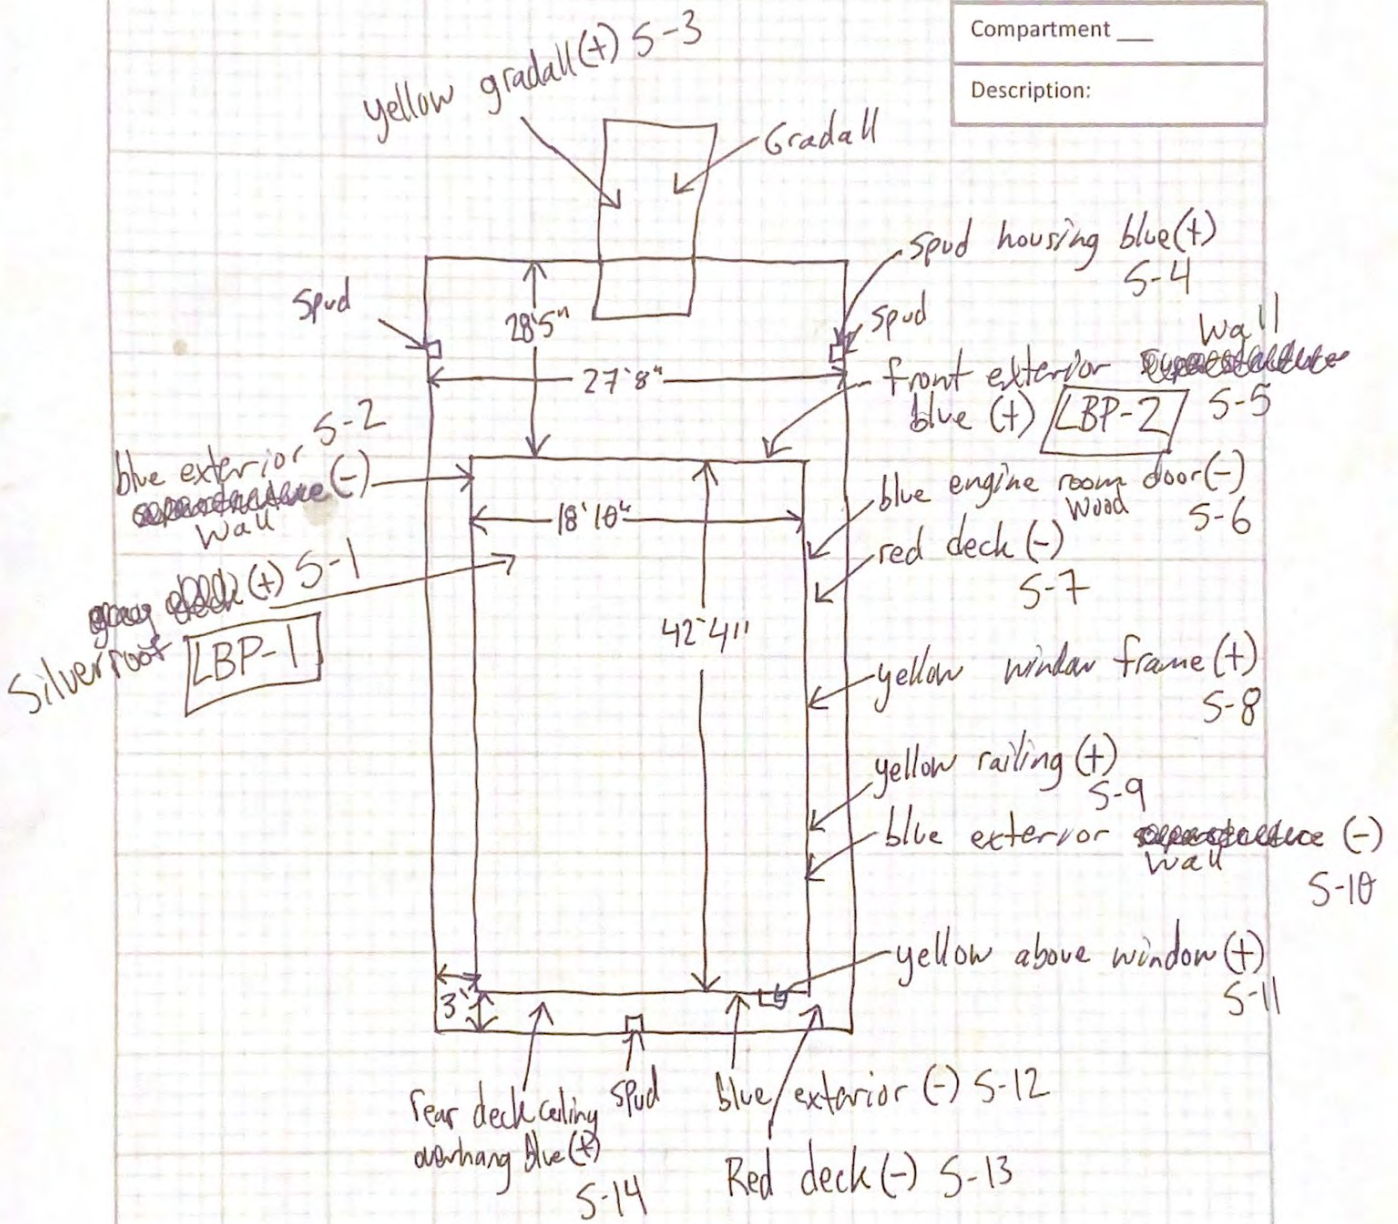 Compartment ___
Description:
yellow gradall (+) S-3
Gradall
spud housing blue (+)
S-4
Spud
28'5"
spud
27'8"
Wall
front exterior
blue (+) LBP-2 S-5
S-2
blue exterior
(-)
Wall
18'10"
blue engine room door (-)
Wood S-6
red deck (-)
S-7
deck (+) S-1
Silver roof LBP-1
42'4"
yellow window frame (+)
S-8
yellow railing (+)
S-9
blue exterior (-)
Wall
S-10
yellow above window (+)
S-11
3'
rear deck ceiling
overhang blue (+)
S-14
spud
blue exterior (-) S-12
Red deck (-) S-13